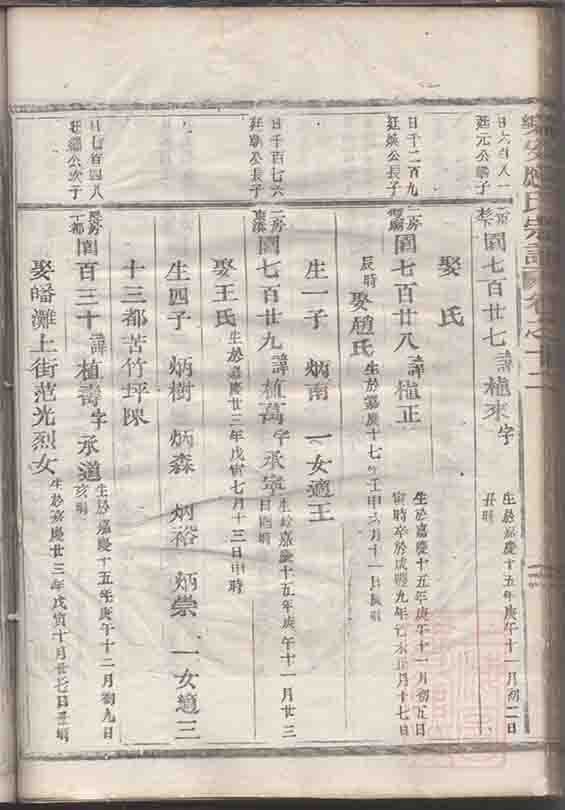 應氏宗譜 卷之十二
日六百八一
廷元公諱子
二房
圍七百廿七 諱植來 字
生於嘉慶十五年庚午十一月初二日
丑時
娶 氏
日千二百九
廷煥公長子
二房
圍七百廿八 諱植正
生於嘉慶十五年庚午十一月初五日
寅時卒於咸豐九年乙未 月十七日
辰時
娶趙氏 生於嘉慶十七年壬申 月十一日辰時
生一子 炳南 一女適王
日千百七六
廷煥公長子
二房
圍七百廿九 諱植萬 字承寧
生於嘉慶十五年庚午十一月廿三
日酉時
娶王氏 生於嘉慶廿三年戊寅七月十三日申時
生四子 炳樹 炳森 炳裕 炳崇 一女適三
十三都苦竹坪陳
日七百四八
廷 公次子
圍百三十 諱植壽 字承道
生於嘉慶十五年庚午十二月初九日
亥時
娶皤灘上街范光烈女 生於嘉慶廿三年戊寅十月廿七日丑時